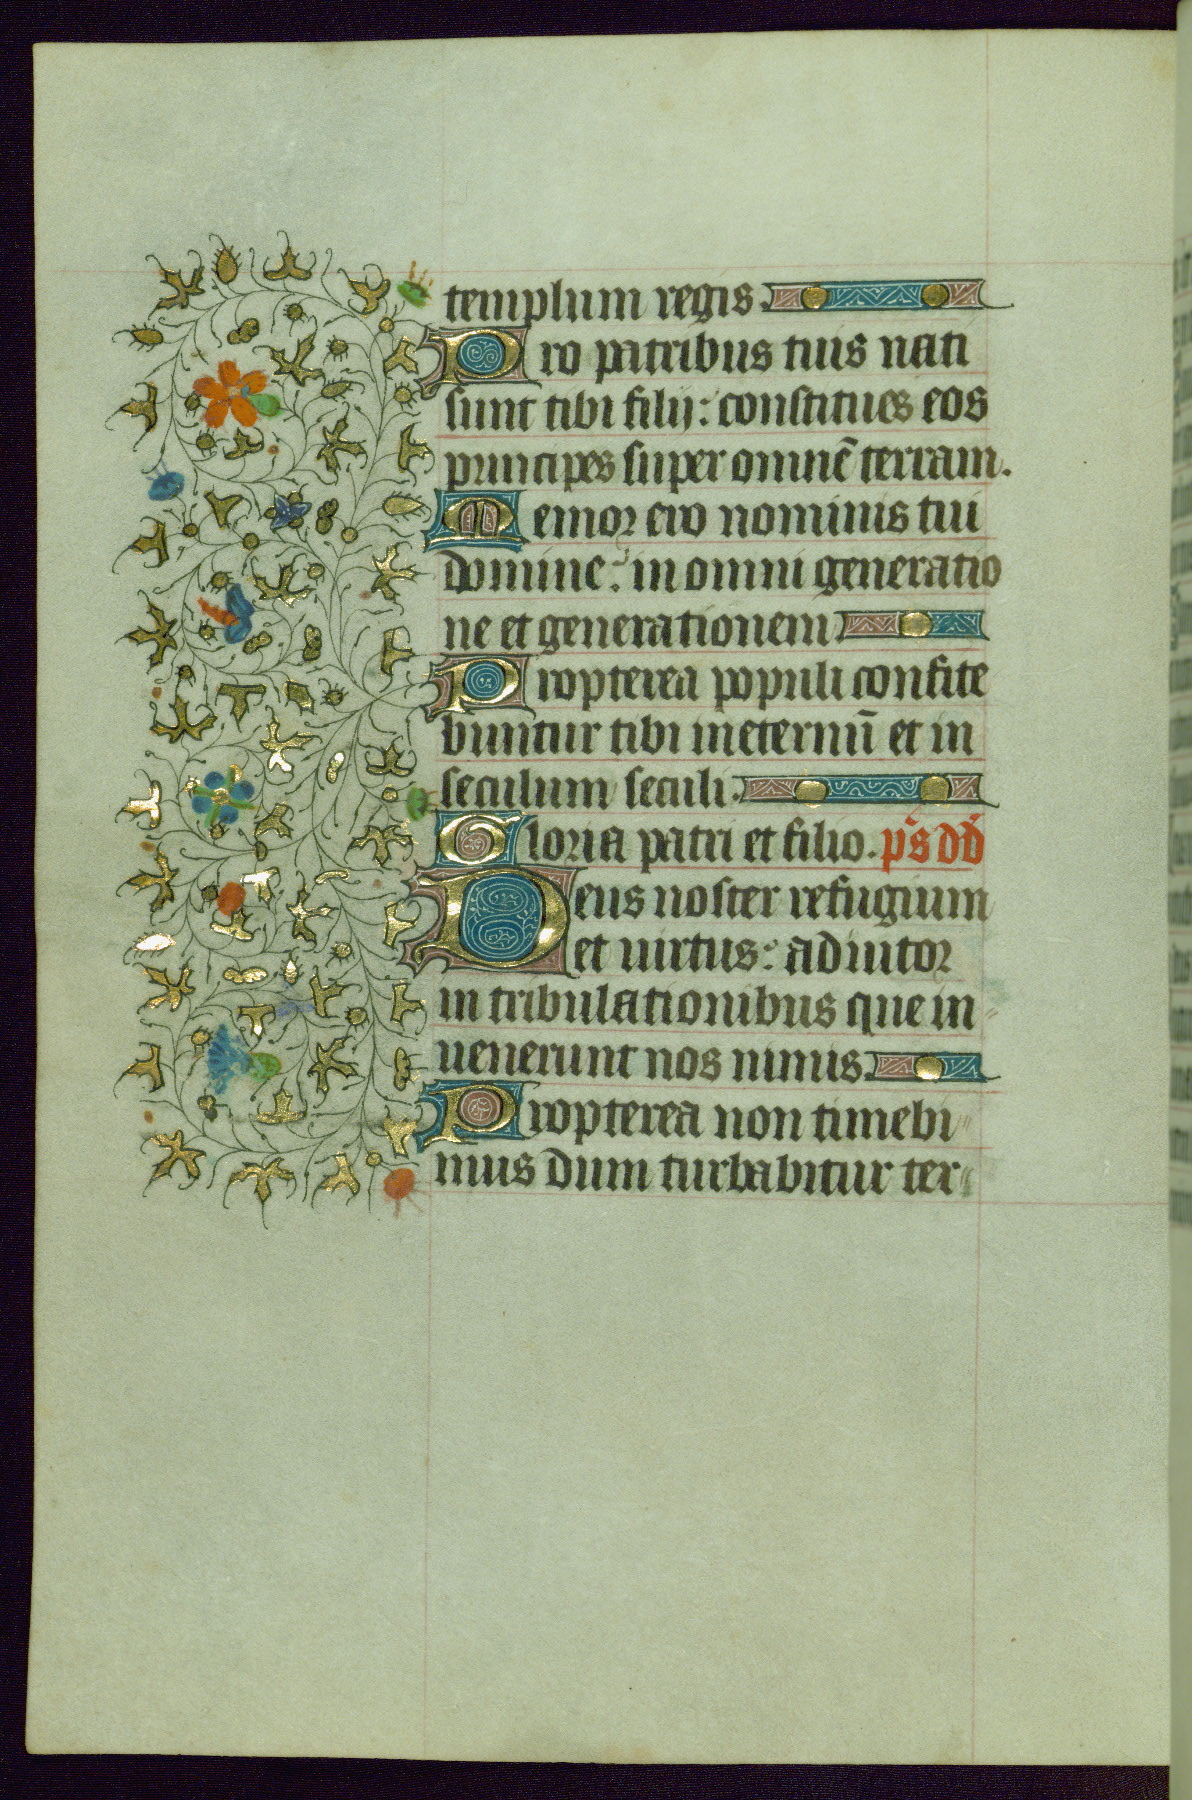 templum regis.
Pro patribus tuis nati
sunt tibi filij: constitues eos
principes super omnē terram.
Memor ero nominis tui
domine: in omni generatio
ne et generationem.
Propterea populi confite
buntur tibi in eternū et in
seculum seculi.
Gloria patri et filio. p̄s dd̄
Deus noster refugium
et uirtus: adiutor
in tribulationibus que in
uenerunt nos nimis.
Propterea non timebi
mus dum turbabitur ter